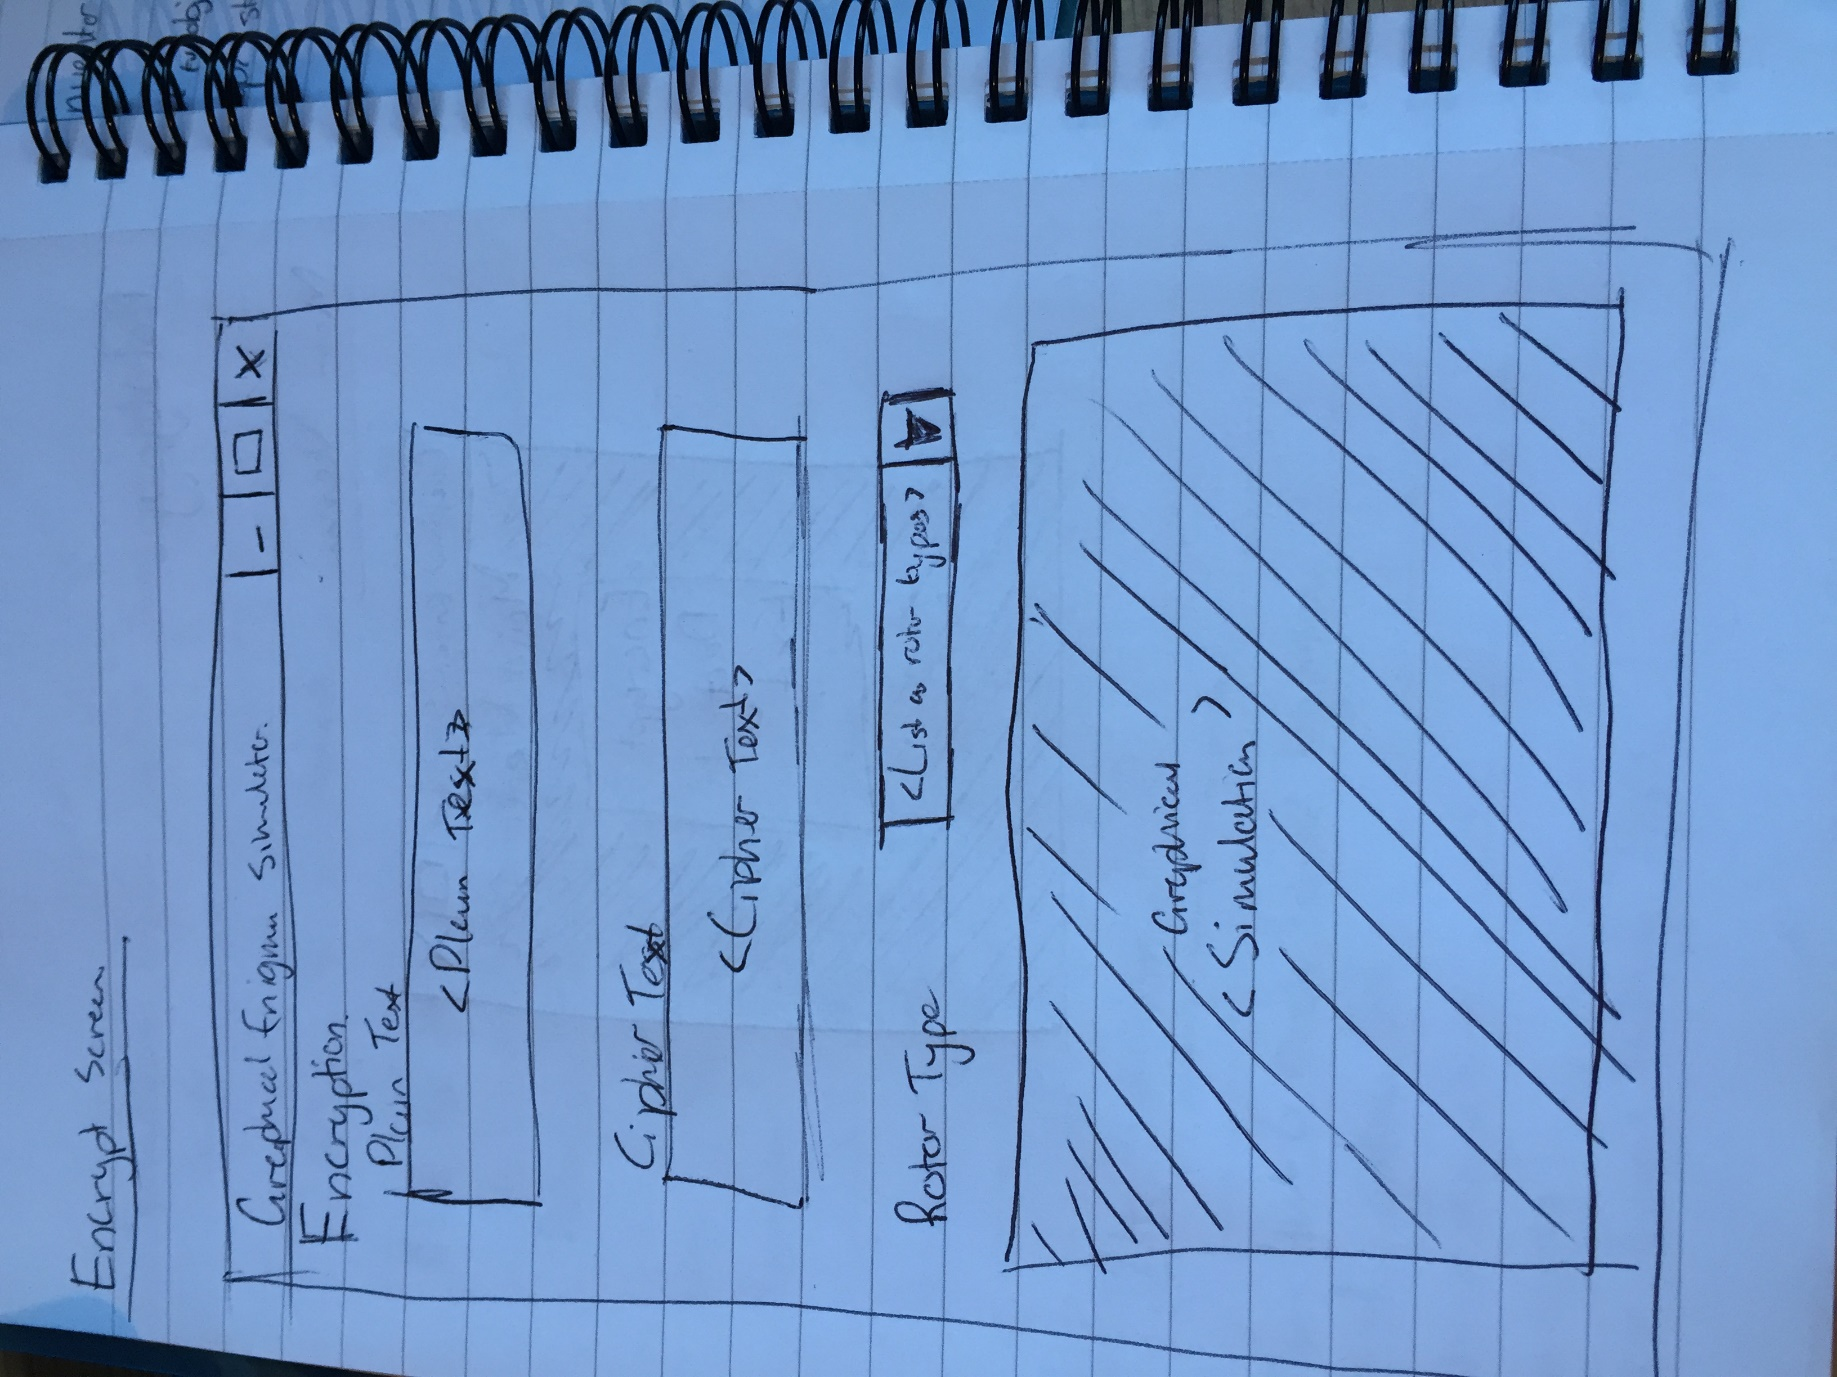 Encrypt Screen
Graphical Enigma Simulator.
- □ X
Encryption
Plain Text
<Plain Text>
Cipher Text
<Cipher Text>
Rotor Type
<List as rotor types> ▼
<Graphical
Simulation>